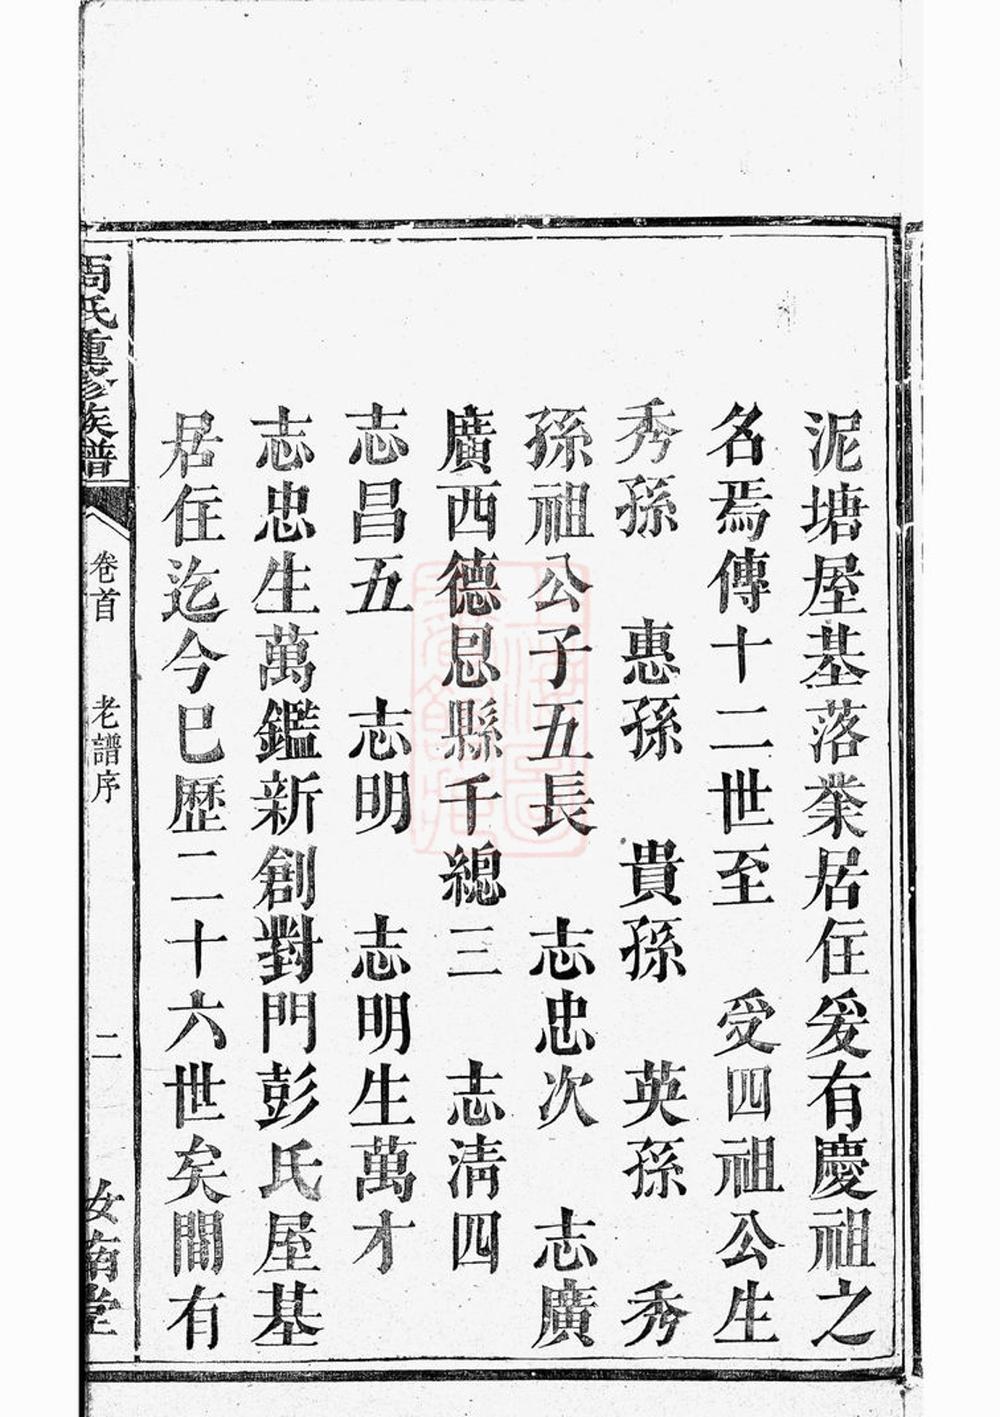 泥塘屋基落業居住爰有慶祖之
名焉傳十二世至　受四祖公生
秀孫　惠孫　貴孫　英孫　秀
孫祖公子五長　志忠次　志廣
廣西德恩縣千總三　志清四
志昌五　志明　志明生萬才
志忠生萬鑑新創對門彭氏屋基
居住迄今巳歷二十六世矣間有
周氏重修族譜
卷首　老譜序　二　汝南堂